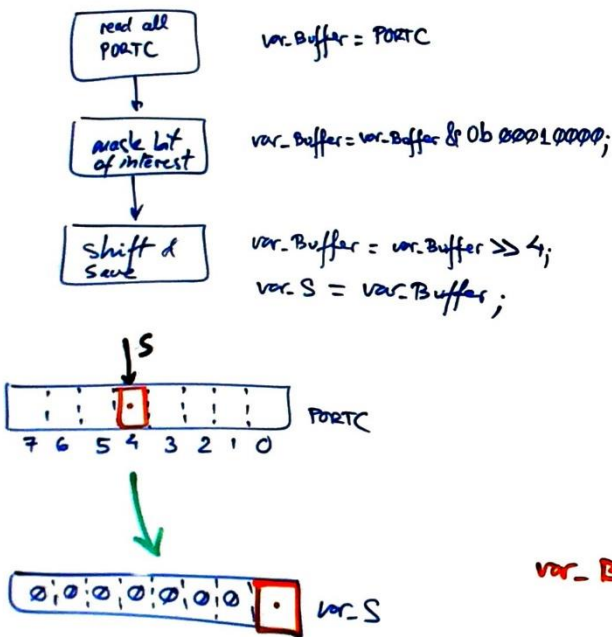 read all
PORTC
var_Buffer = PORTC
mask bit
of interest
var_Buffer = var_Buffer & 0b 00010000;
shift &
save
var_Buffer = var_Buffer >> 4;
var_S = var_Buffer;
S
PORTC
7 6 5 4 3 2 1 0
0 0 0 0 0 0 0
var_S
var_B